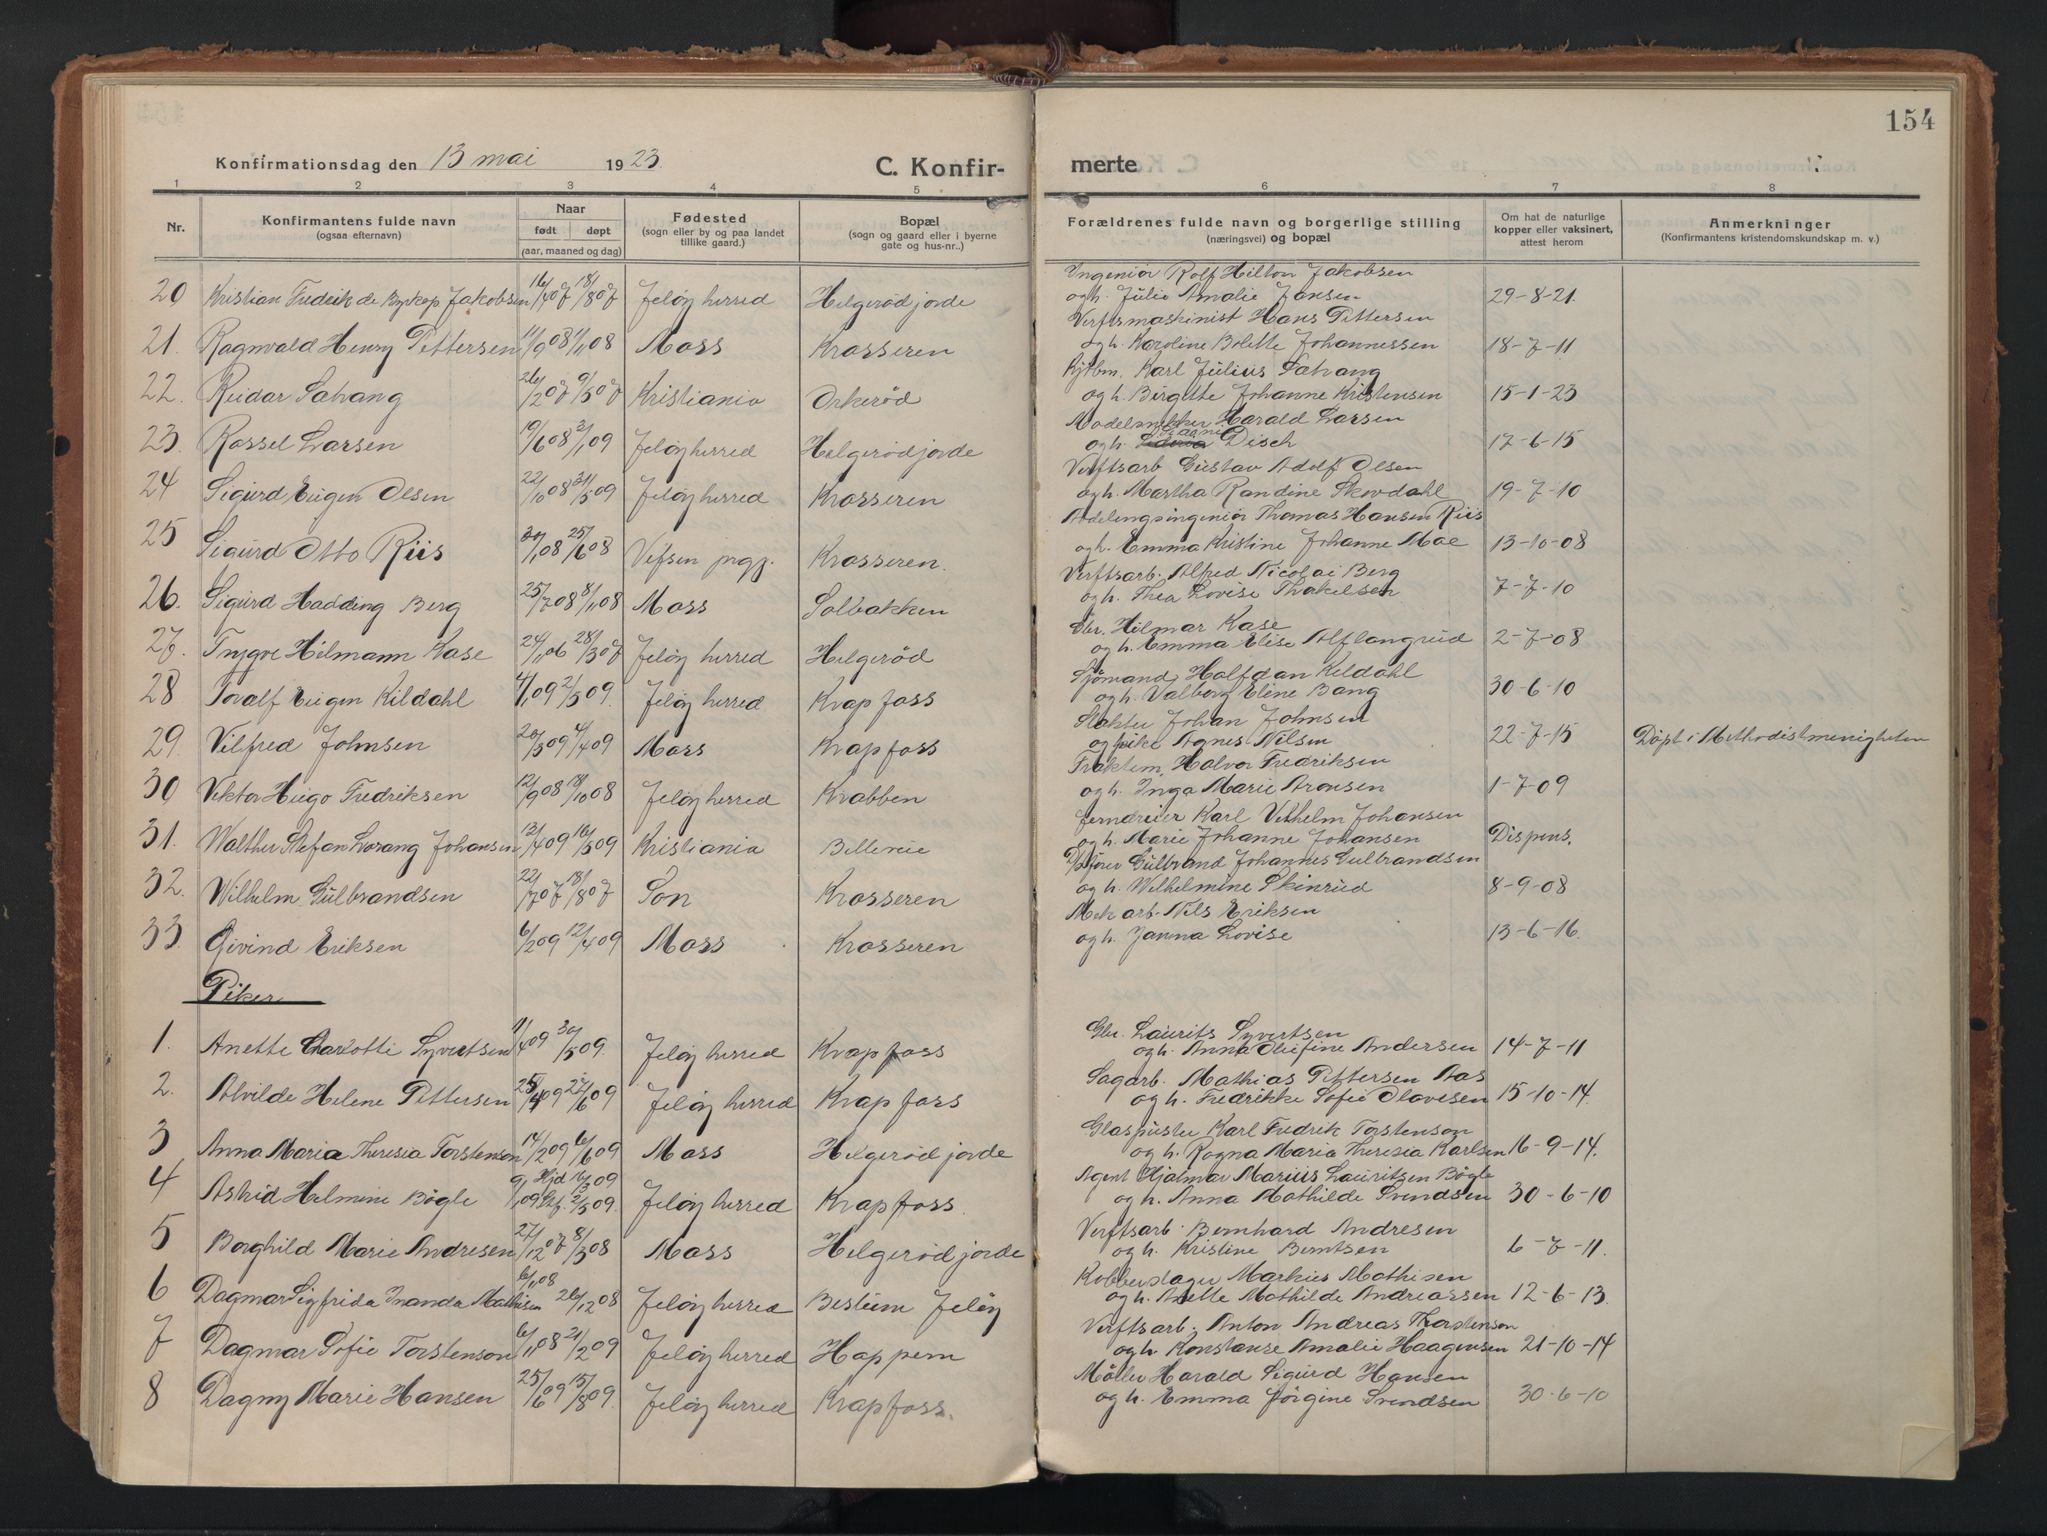 154
Konfirmationsdag den 13 mai 1923. C. Konfir- merte
1 2 3 4 5 6 7 8
Nr. Konfirmantens fulde navn (ogsaa efternavn) Naar født døpt (aar, maaned og dag) Fødested (sogn eller by og paa landet tillike gaard.) Bopæl (sogn og gaard eller i byerne gate og hus-nr..) Forældrenes fulde navn og borgerlige stilling (næringsvei) og bopæl Om hat de naturlige kopper eller vaksinert, attest herom Anmerkninger (Konfirmantens kristendomskundskap m. v.)
Ingeniør Rolf Hilton Jakobsen
20 Kristian Fredrik de Jakobsen 16/4 07 18/8 07 Jeløy herred Helgerødjorde og h. Julie Amalie Jansen 29-8-21.
Verftsmaskinist Hans Pettersen
21. Ragnvald Henry Pettersen 11/9 08 1/11 08 Moss Krosseren og h. Karoline Bolette Johannessen 18-7-11
Kjøbm. Karl Julius Satvang
22. Reidar Satvang 26/2 07 9/5 07 Kristiania Orkerød og h. Birgitte Johanne Kristensen 15-1-23
Modelsnekker Harald Larsen
23. Rossel Larsen 19/6 08 3/1 09 Jeløy herred Helgerødjorde og h. Disch 17-6-15
Verftsarb Gustav Adolf Olsen
24 Sigurd Eugen Olsen 22/10 08 31/5 09 Jeløy herred Krosseren og h. Martha Randine Skovdahl 19-7-10
Avdelingsingeniør Thomas Hansen Riis
25 Sigurd Otto Riis 30/1 08 25/6 08 Vefsen prgj. Krosseren. og h. Emma Kristine Johanne Moe 13-10-08
Verftsarb. Alfred Nicolai Berg
26. Sigurd Hadding Berg 25/7 08 8/11 08 Moss Solbakken og h. Thea Lovise Thakelsen 7-7-10
Gbr. Hilmar Kase
27. Trygve Hilmann Kase 24/11 06 28/3 07 Jeløy herred Helgerød og h. Emma Elise Alflangrud 2-7-08
Sjømand Halfdan Kildahl
28 Toralf Eugen Kildahl 4/1 09 2/5 09. Jeløy herred Krapfoss og h. Valborg Eline Bang 30-6-10
Slakter Johan Johnsen
29. Vilfred Johnsen 20/3 09 4/4 09 Moss Krapfoss og pike Agnes Nilsen 22-7-15 Döpt i Methodistmenigheten
Fraktem. Halvor Fredriksen
30 Viktor Hugo Fredriksen 12/9 08 18/10 08 Jeløy herred Krabben og h. Inga Marie Aronsen 1-7-09
Jerndreier Karl Vilhelm Johansen
31. Walther Stefan Lorang Johansen 13/4 09 16/5 09 Kristiania Bellevue og h. Marie Johanne Johansen Dispens.
D/Sfører Gulbrand Johannes Gulbrandsen
32. Wilhelm Gulbrandsen 22/7 07 18/8 07 Son Krosseren og h. Wilhelmine Skinrud 8-9-08
Mek arb. Nils Eriksen
33. Øivind Eriksen 6/2 09 12/4 09 Moss Krosseren og h. Janna Lovise 13-6-16.
Piker
Gbr. Laurits Syvertsen
1. Anette Charlotti Syvertsen 9/4 09 30/5 09. Jeløy herred Krapfoss og h. Anna Olefine Andersen 14-7-11
Sagarb. Mathias Pettersen Aas
2. Alvilde Helene Pettersen 25/4 09 27/6 09 Jeløy herred Krapfoss og h. Fredrikke Sofie Olavesen 15-10-14.
Glaspuster Karl Fredrik Torstenson
3 Anna Maria Theresia Torstenson 14/2 09 6/6 09 Moss Helgerødjorde og h. Rogna Maria Theresia Karlsen 16-9-14.
Agent Hjalmar Marius Lauritzen Bögle
4 Astrid Helmine Bögle 9/1 09 Hjd 16/3 09 2/5 09. Jeløy herred Krapfoss. og h. Anna Mathilde Svendsen 30-6-10
Verftsarb. Bernhard Andresen
5 Borghild Marie Andresen 27/12 07 8/3 08 Moss Helgerødjorde og h. Kristine Berntsen 6-7-11.
Kobberslager Markus Mathisen
6 Dagmar Sigfrida Inanda Mathisen 6/11 08 26/12 08 Jeløy herred Bestum Jeløy og h. Anette Mathilde Andreassen 12-6-13.
Verftsarb. Anton Andreas Thorstenson
7 Dagmar Sofie Torstenson 6/11 08 21/2 09 Jeløy herred Happern og h. Konstanse Amalie Haagensen 21-10-14
Møller Harald Sigurd Hansen
8 Dagny Marie Hansen 25/6 09 15/8 09. Jeløy herred Krapfoss. og h. Emma Jørgine Svendsen 30-6-10